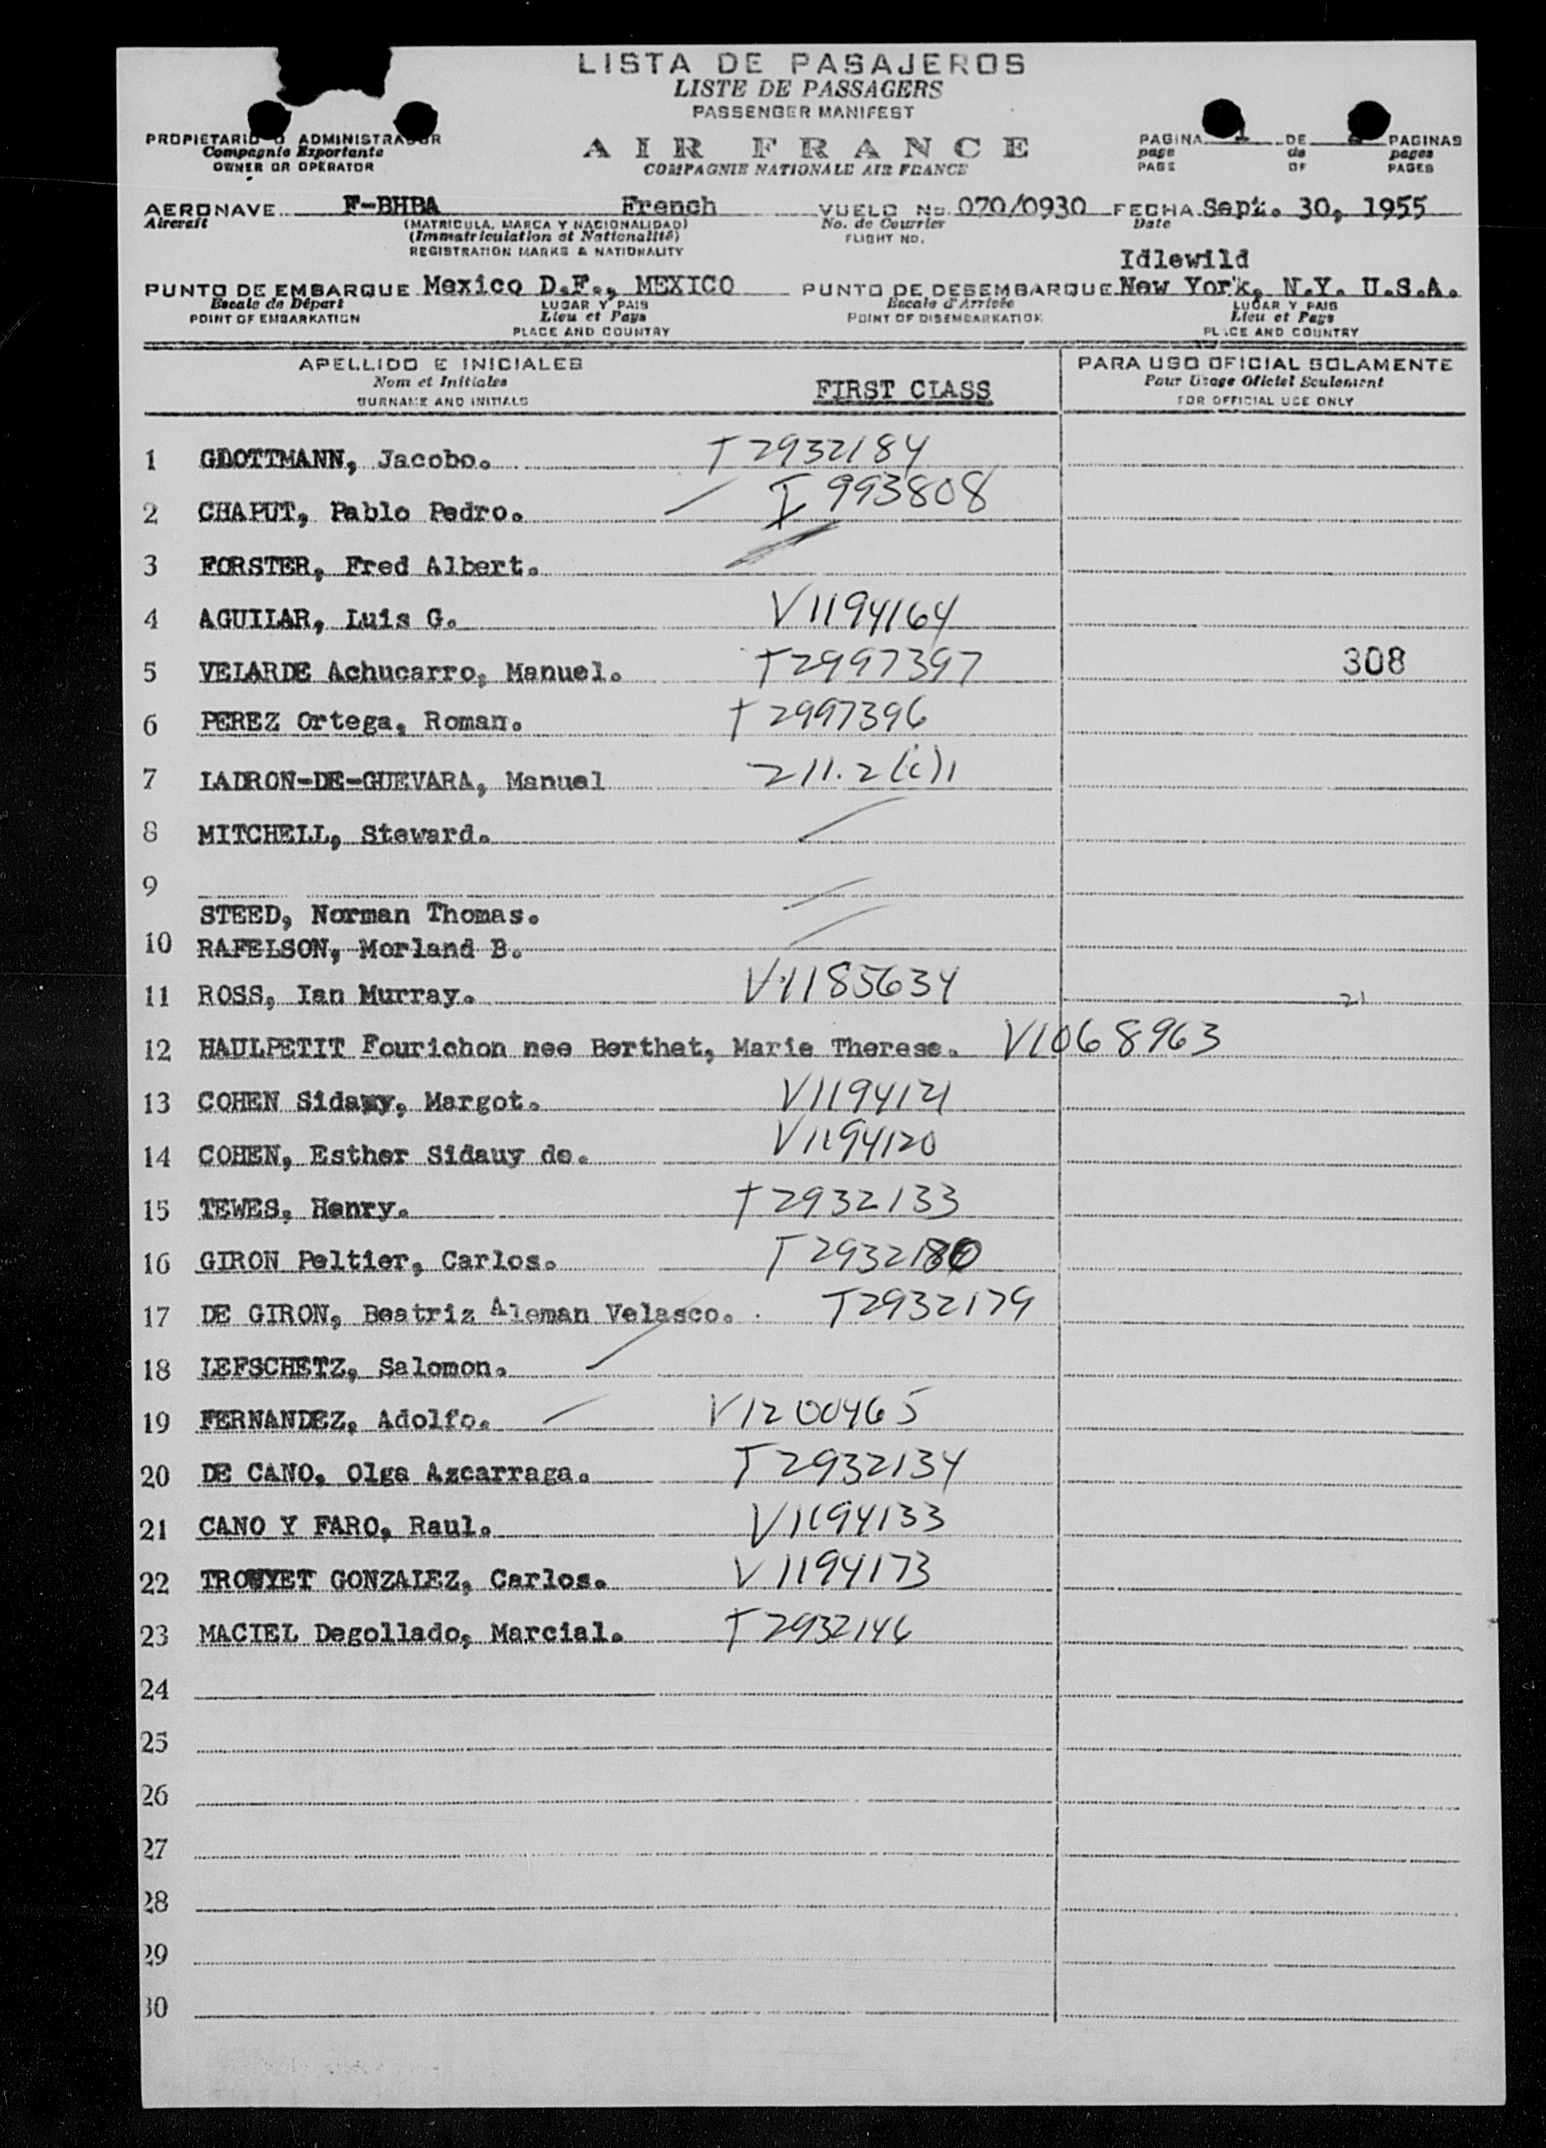 LISTA DE PASAJEROS
LISTE DE PASSAGERS
PASSENGER MANIFEST
PROPIETARIO O ADMINISTRADOR
Compagnie Exportante
OWNER OR OPERATOR
AIR FRANCE
COMPAGNIE NATIONALE AIR FRANCE
PAGINA 1 DE PAGINAS
page de pages
PAGE OF PAGES
AERONAVE F-BHBA French VUELO No. 070/0930 FECHA Sept. 30, 1955
Aircraft (MATRICULA, MARCA Y NACIONALIDAD) No. de Courrier Date
(Immatriculation et Nationalité) FLIGHT NO.
REGISTRATION MARKS & NATIONALITY
Idlewild
PUNTO DE EMBARQUE Mexico D.F., MEXICO PUNTO DE DESEMBARQUE New York, N.Y. U.S.A.
Escale de Départ LUGAR Y PAIS Escale d'Arrivée LUGAR Y PAIS
POINT OF EMBARKATION Lieu et Pays POINT OF DISEMBARKATION Lieu et Pays
PLACE AND COUNTRY PLACE AND COUNTRY
APELLIDO E INICIALES PARA USO OFICIAL SOLAMENTE
Nom et Initiales FIRST CLASS Pour Usage Officiel Seulement
SURNAME AND INITIALS FOR OFFICIAL USE ONLY
1 GLOTTMANN, Jacobo. T2932184
2 CHAPUT, Pablo Pedro. I 993808
3 FORSTER, Fred Albert.
4 AGUILAR, Luis G. V1194164
5 VELARDE Achucarro, Manuel. T2997397 308
6 PEREZ Ortega, Roman. T2997396
7 LADRON-DE-GUEVARA, Manuel 211.2(c)1
8 MITCHELL, Steward.
9
STEED, Norman Thomas.
10 RAFELSON, Morland B.
11 ROSS, Ian Murray. V1185634 21
12 HAULPETIT Fourichon nee Berthet, Marie Therese. V1068963
13 COHEN Sidauy, Margot. V1194121
14 COHEN, Esther Sidauy de. V1194120
15 TEWES, Henry. T2932133
16 GIRON Peltier, Carlos. T2932180
17 DE GIRON, Beatriz Aleman Velasco. T2932179
18 LEFSCHETZ, Salomon.
19 FERNANDEZ, Adolfo. V1200465
20 DE CANO, Olga Azcarraga. T2932134
21 CANO Y FARO, Raul. V1194133
22 TROUYET GONZALEZ, Carlos. V1194173
23 MACIEL Degollado, Marcial. T2932146
24
25
26
27
28
29
30